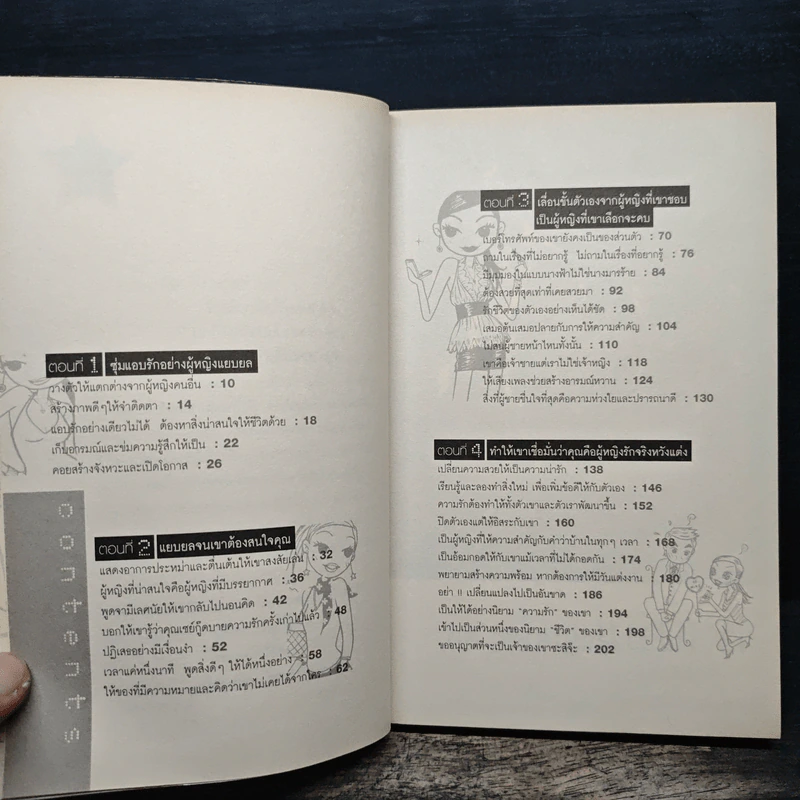 ตอนที่ 1 ซุ่มแอบรักอย่างผู้หญิงแยบยล
วางตัวให้แตกต่างจากผู้หญิงคนอื่น : 10
สร้างภาพดีๆ ให้จำติดตา : 14
แอบรักอย่างเดียวไม่ได้ ต้องหาสิ่งน่าสนใจให้ชีวิตด้วย : 18
เก็บอารมณ์และข่มความรู้สึกให้เป็น : 22
คอยสร้างจังหวะและเปิดโอกาส : 26
contents
ตอนที่ 2 แยบยลจนเขาต้องสนใจคุณ
แสดงอาการประหม่าและตื่นเต้นให้เขาสงสัยเล่น : 32
ผู้หญิงที่น่าสนใจคือผู้หญิงที่มีบรรยากาศ : 36
พูดจามีเลศนัยให้เขากลับไปนอนคิด : 42
บอกให้เขารู้ว่าคุณเซย์กู๊ดบายความรักครั้งเก่าไปแล้ว : 48
ปฏิเสธอย่างมีเงื่อนงำ : 52
เวลาแค่หนึ่งนาที พูดสิ่งดีๆ ให้ได้หนึ่งอย่าง : 58
ให้ของที่มีความหมายและคิดว่าเขาไม่เคยได้จากใคร : 62
ตอนที่ 3 เลื่อนขั้นตัวเองจากผู้หญิงที่เขาชอบ
เป็นผู้หญิงที่เขาเลือกจะคบ
เบอร์โทรศัพท์ของเขายังคงเป็นของส่วนตัว : 70
ถามในเรื่องที่ไม่อยากรู้ ไม่ถามในเรื่องที่อยากรู้ : 76
มีมุมมองในแบบนางฟ้าไม่ใช่นางมารร้าย : 84
ต้องสวยที่สุดเท่าที่เคยสวยมา : 92
รักชีวิตของตัวเองอย่างเห็นได้ชัด : 98
เสมอต้นเสมอปลายกับการให้ความสำคัญ : 104
ไม่สนผู้ชายหน้าไหนทั้งนั้น : 110
เขาคือเจ้าชายแต่เราไม่ใช่เจ้าหญิง : 118
ให้เสียงเพลงช่วยสร้างอารมณ์หวาน : 124
สิ่งที่ผู้ชายชื่นใจที่สุดคือความห่วงใยและปรารถนาดี : 130
ตอนที่ 4 ทำให้เขาเชื่อมั่นว่าคุณคือผู้หญิงรักจริงหวังแต่ง
เปลี่ยนความสวยให้เป็นความน่ารัก : 138
เรียนรู้และลองทำสิ่งใหม่ เพื่อเพิ่มข้อดีให้กับตัวเอง : 146
ความรักต้องทำให้ทั้งตัวเขาและตัวเราพัฒนาขึ้น : 152
ปิดตัวเองแต่ให้อิสระกับเขา : 160
เป็นผู้หญิงที่ให้ความสำคัญกับคำว่าบ้านในทุกๆ เวลา : 168
เป็นอ้อมกอดให้กับเขาแม้เวลาที่ไม่ได้กอดกัน : 174
พยายามสร้างความพร้อม หากต้องการให้มีวันแต่งงาน : 180
อย่า !! เปลี่ยนแปลงไปเป็นอันขาด : 186
เป็นให้ได้อย่างนิยาม "ความรัก" ของเขา : 194
เข้าไปเป็นส่วนหนึ่งของนิยาม "ชีวิต" ของเขา : 198
ขออนุญาตที่จะเป็นเจ้าของเขาซะสิจ๊ะ : 202